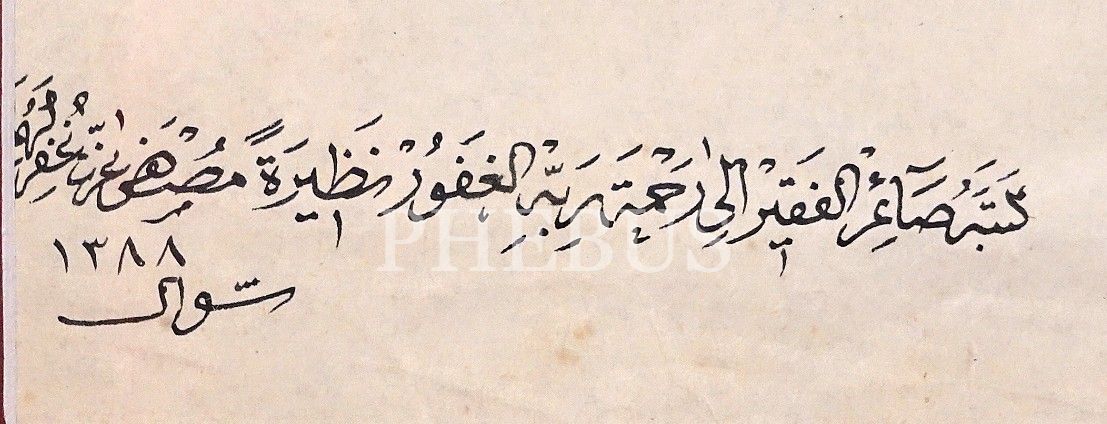 كَتَبَهُ صَائِمْ الفَقِيْر اِلٰى رَحْمَةِ رَبِّهِ الغَفُورْ نَظِيْرَةً مُصْطَفٰى عِزَّتْ غُفِرَ لَهُمَا
١٣٨٨
شوال
PHEBUS